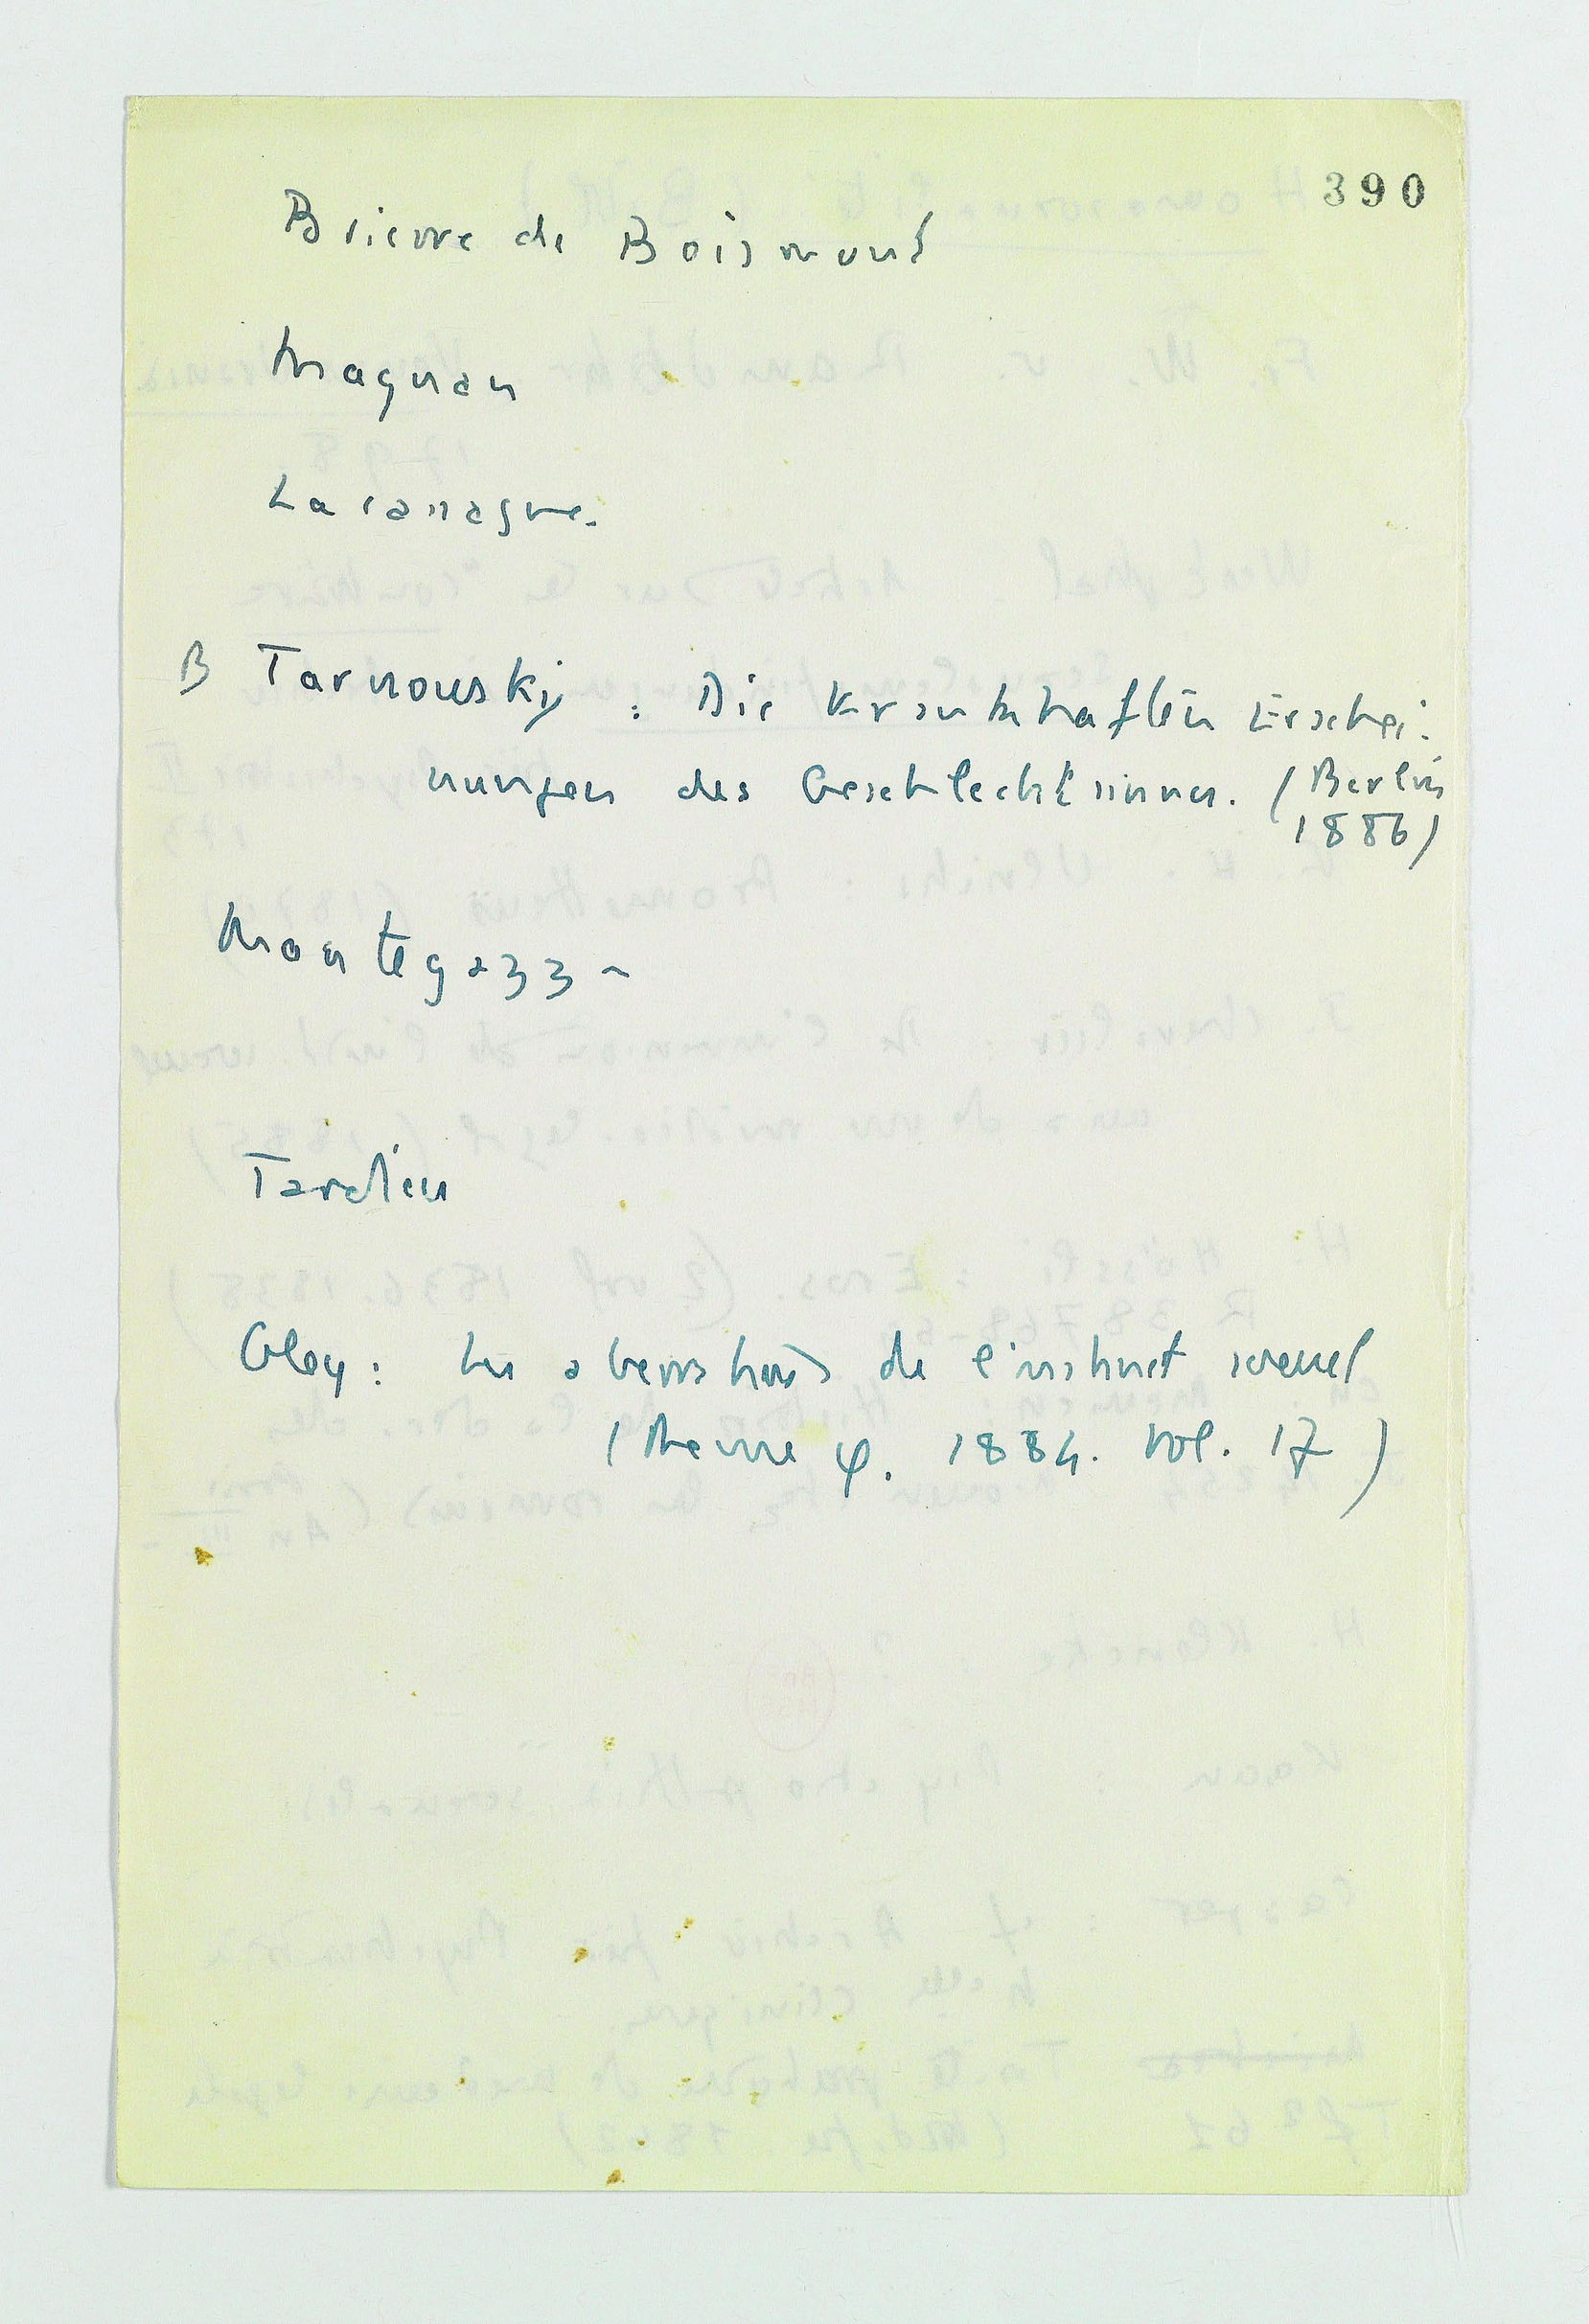 390
Brierre de Boismont
Magnan
Lacassagne.
B Tarnowsky : Die Krankhaften Erschei-
nungen des Geschlechtsinnes. (Berlin
1886)
Mantegazza
Tardieu
Gley : Les aberrations de l'instinct sexuel
(Revue φ. 1884. vol. 17)